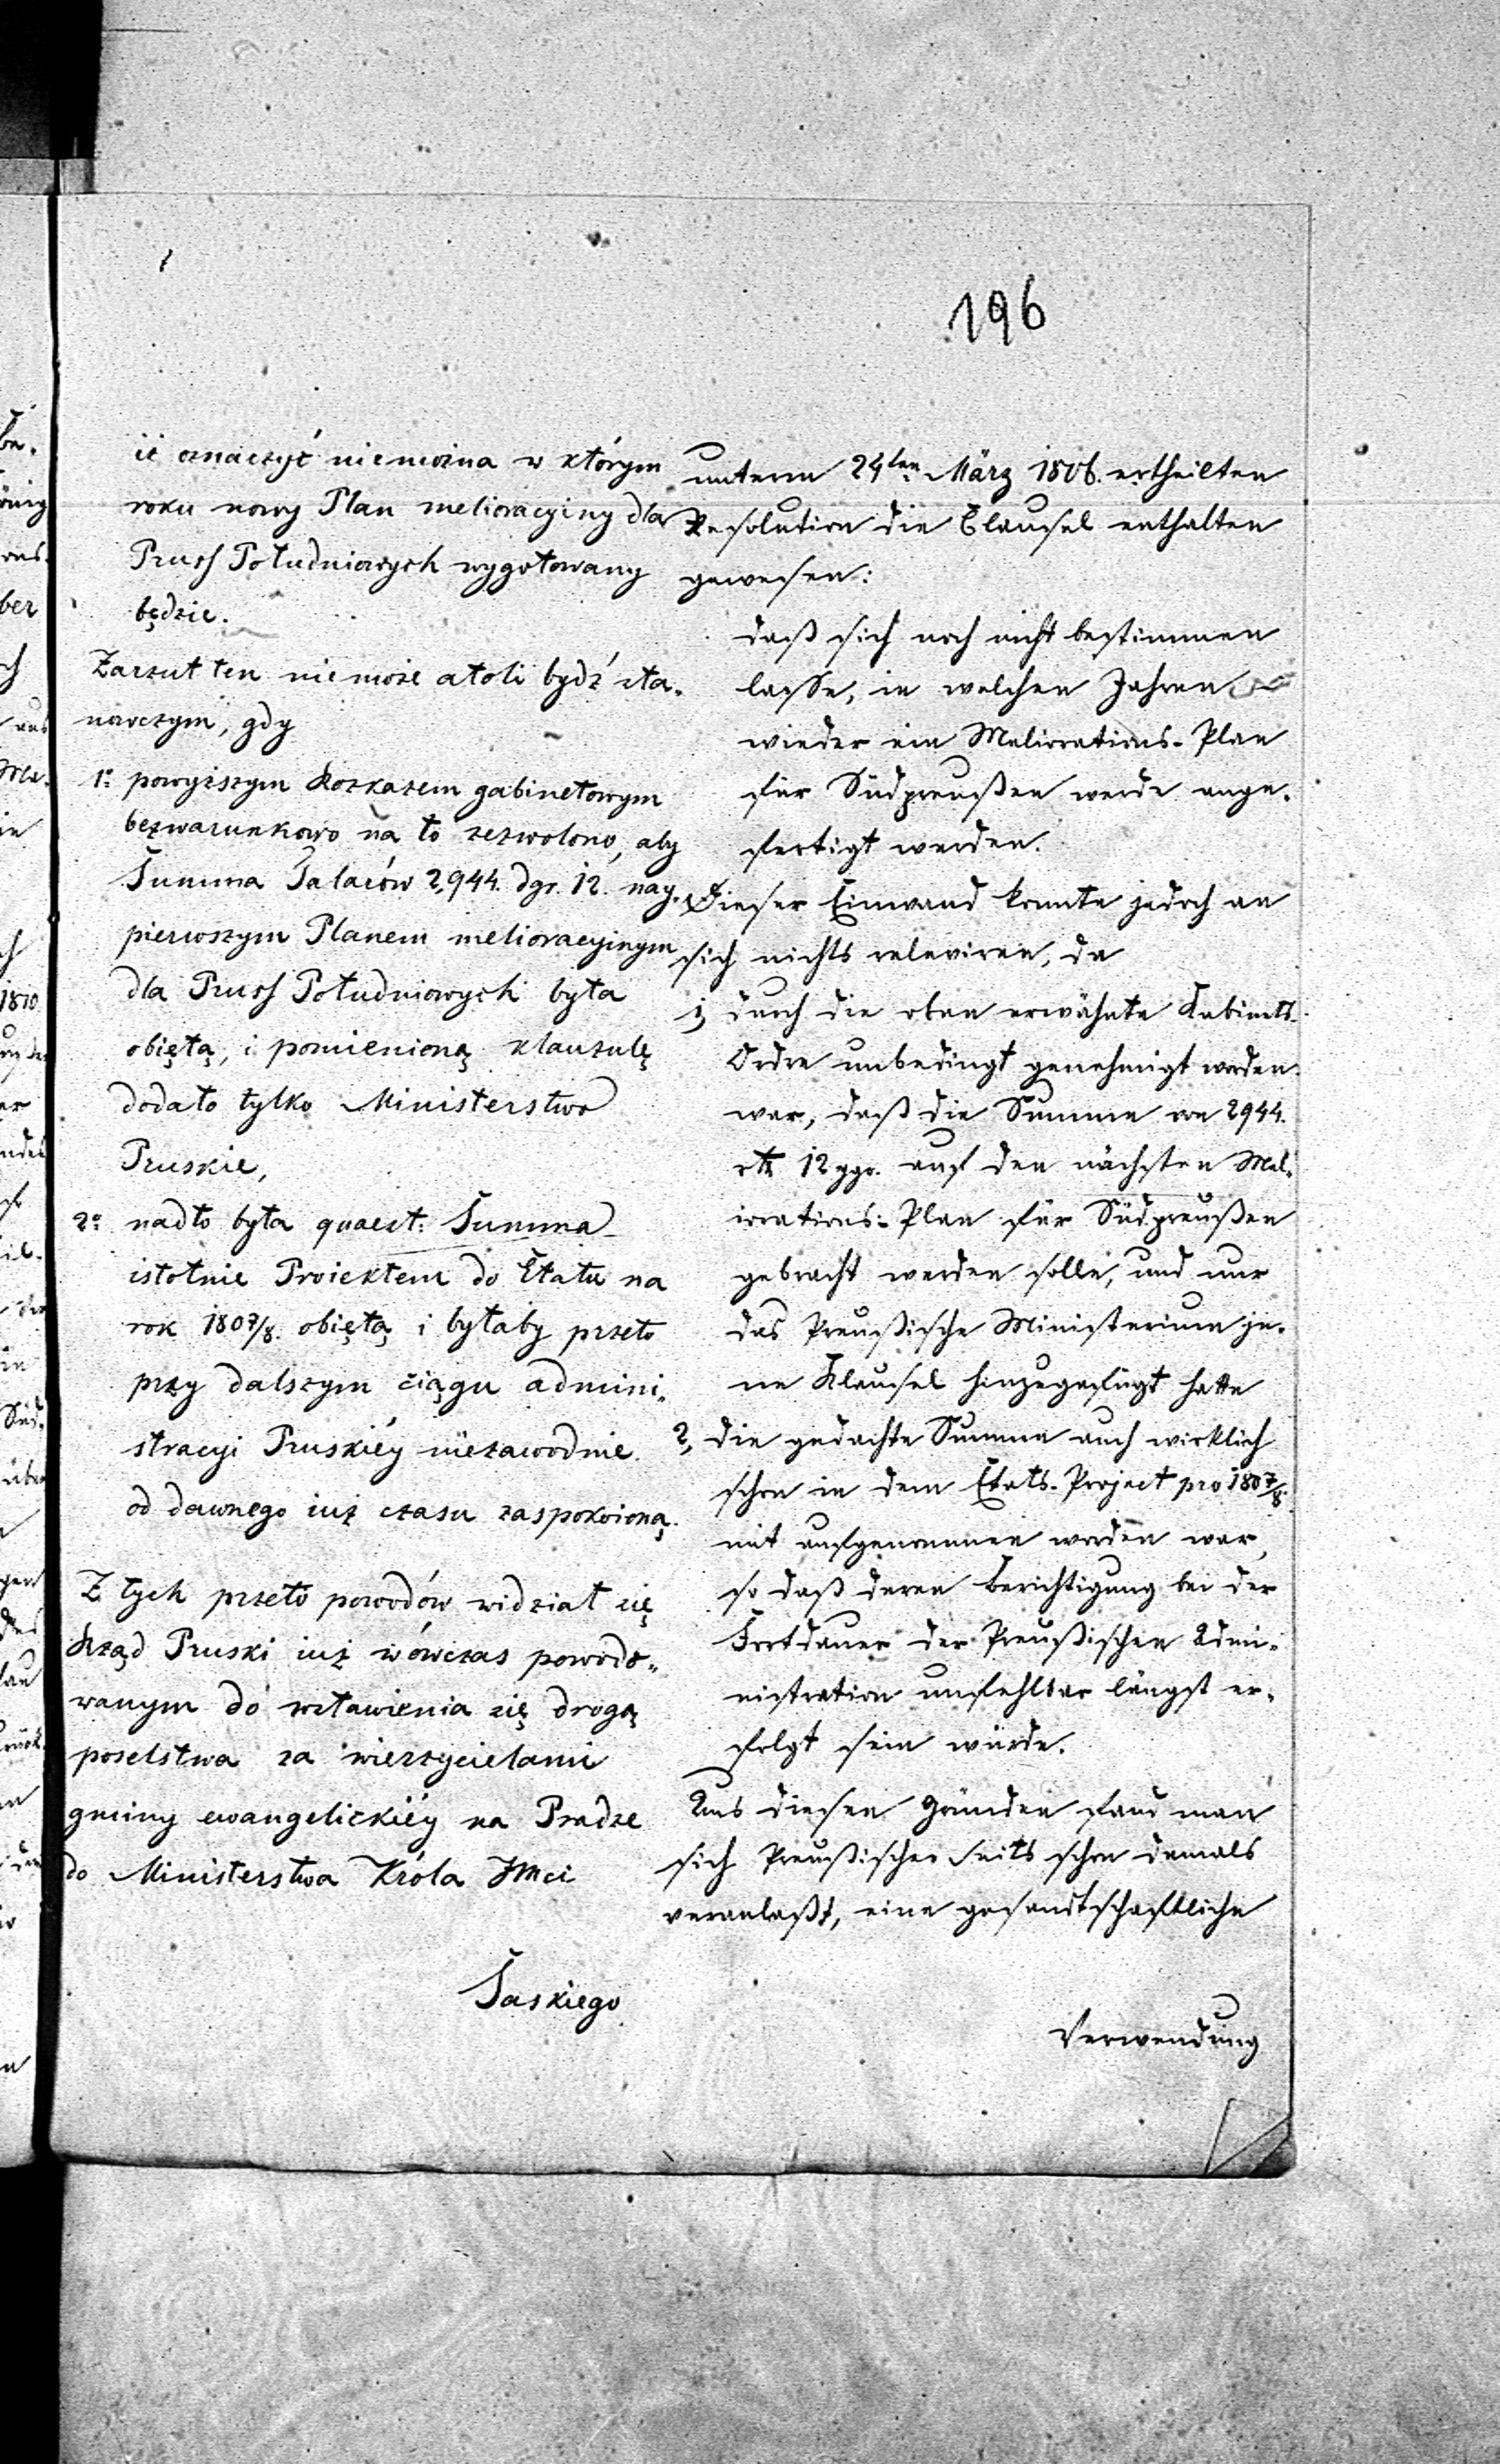 196
iż oznaczyć niemożna w którym
roku nowy Plan melioracyiny dla
Pruss Południowych wygotowany
będzie.
Zarzut ten niemoże atoli bydź sta„
nowczym, gdy
1o powyższym Rozkazem gabinetowym
bezwarunkowo na to zezwolono, aby
Summa Talarów 2,944. dgr. 12. nay„
pierwszym Planem melioracyinym
dla Pruss Południowych była
obiętą, i pomienioną klauzulę
dodało tylko Ministerstwo
Pruskie,
2o nadto była quaest: Summa
istotnie Proiektem do Etatu na
rok 1807/8. obiętą i byłaby przeto
przy dalszym ciągu admini„
stracyi Pruskiéy niezawodnie
od dawnego iuż czasu zaspokoioną.
Z tych przeto powodów widział się
Rząd Pruski iuż wówczas powodo„
wanym do wstawienia się drogą
poselstwa za wierzycielami
gminy ewangelickiéy na Pradze
do Ministerstwa Króla JMci
Saskiego
unterm 24ten März 1806. ertheilten
Resolution die Clausel enthalten
gewesen:
daß sich noch nicht bestimmen
lasse, in welchen Jahren
wieder ein Meliorations-Plan
für Südpreußen werde ange-
fertigt werden.
Dieser Einwand konnte jedoch an
sich nichts releviren, da
1, durch die oben erwähnte Kabinets-
Ordre unbedingt genehmigt worden
war, daß die Summe von 2944.
rth 12 ggr. auf den nächsten Mel-
iorations-Plan für Südpreußen
gebracht werden solle, und nur
das Preußische Ministerium je-
ne Klausel hinzugefügt hatte
2, die gedachte Summe auch wirklich
schon in dem Etats-Project pro 1807/8.
mit aufgenommen worden war,
so daß deren Berichtigung bei der
Fortdauer der Preußischen Admi-
nistration unfehlbar längst er-
folgt sein würde.
Aus diesen Gründen fand man
sich Preußischer Seits schon damals
veranlaßt, eine gesandtschaftliche
Verwendung